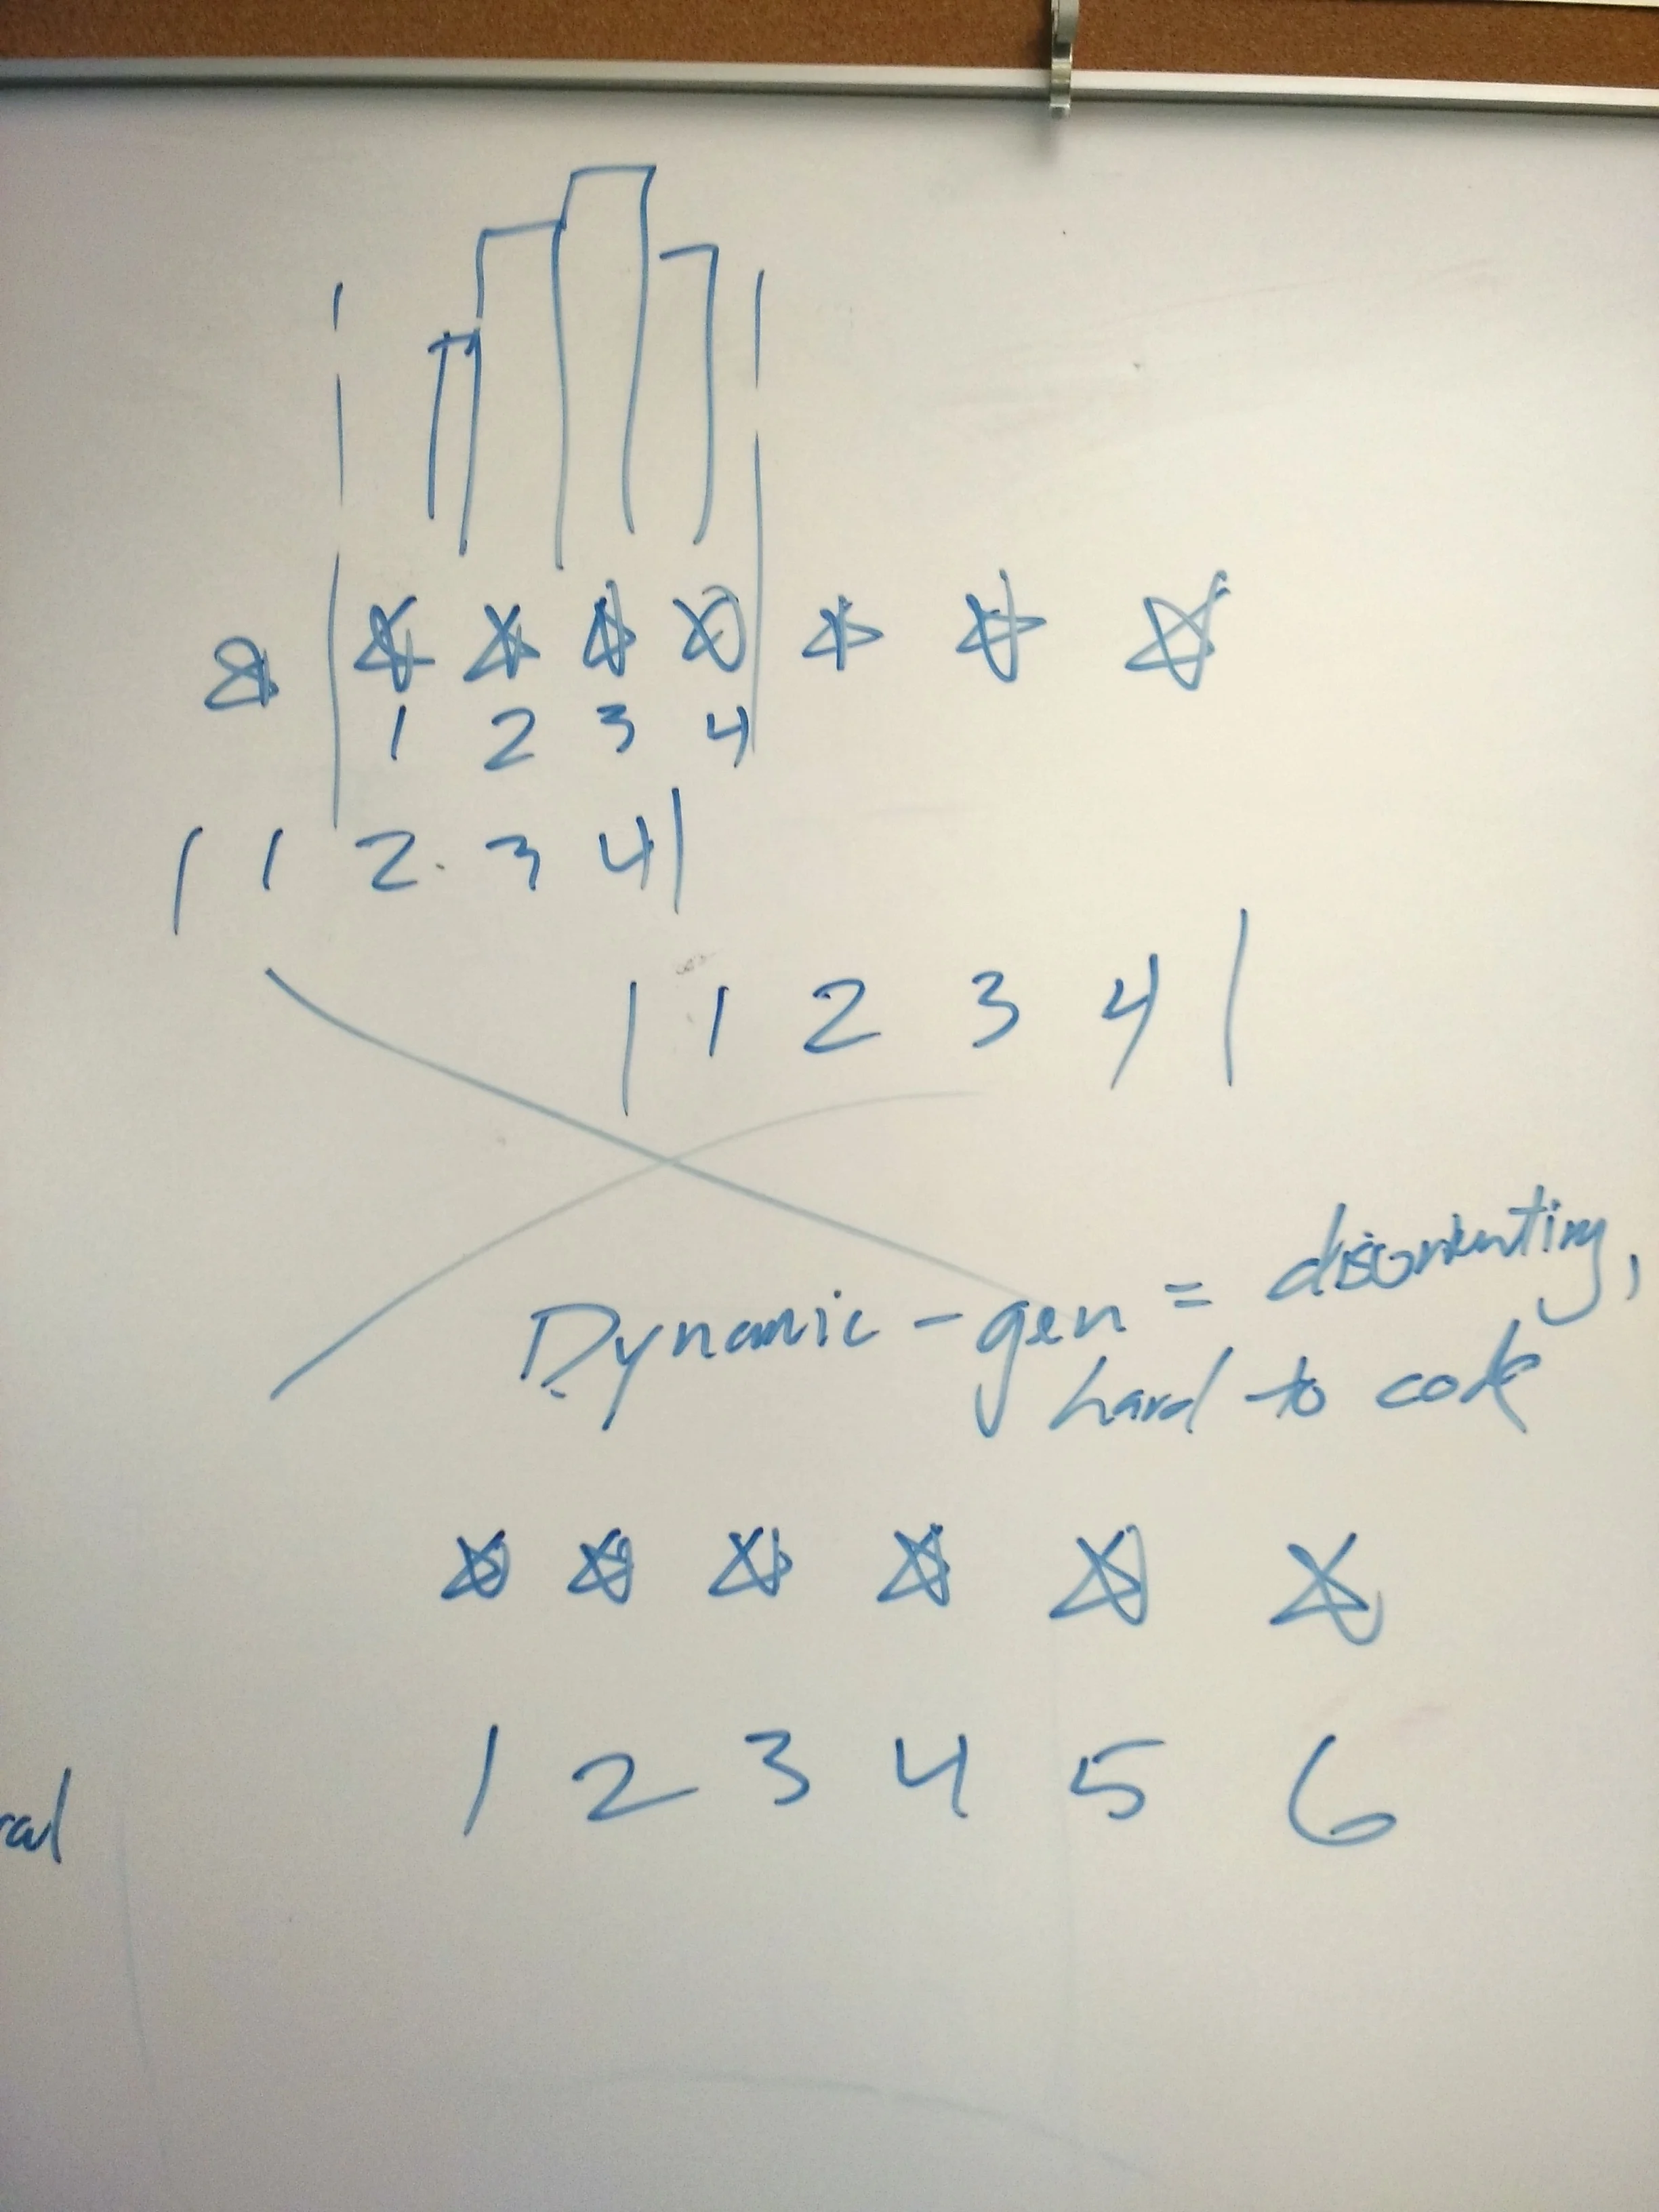 1 2 3 4
1 2 3 4
1 2 3 4
Dynamic - gen = disorienting,
hard to code
1 2 3 4 5 6